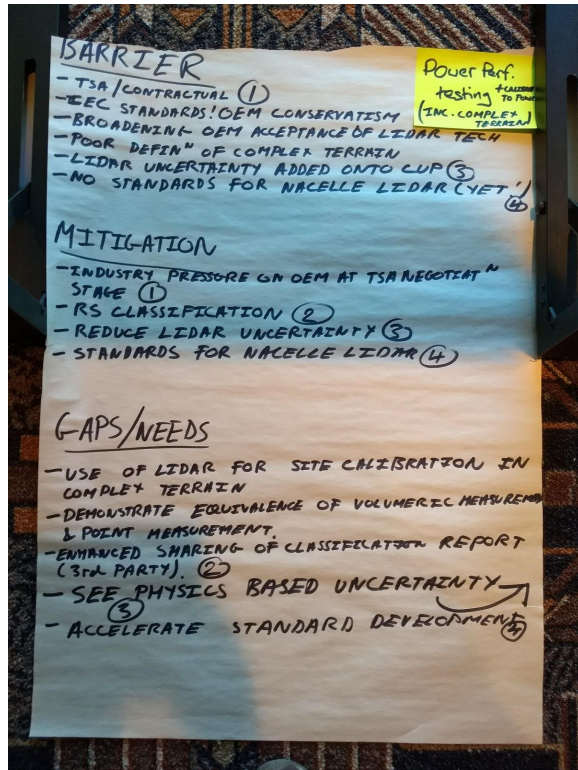 BARRIER
- TSA/CONTRACTUAL ①
- IEC STANDARDS! OEM CONSERVATISM
- BROADENING OEM ACCEPTANCE OF LIDAR TECH
- POOR DEFINᴺ OF COMPLEX TERRAIN
- LIDAR UNCERTAINTY ADDED ONTO CUP ③
- NO STANDARDS FOR NACELLE LIDAR (YET!)
④
Power Perf.
testing
+CALIBRAT
TO POWER
(INC. COMPLEX
TERRAIN)
MITIGATION
- INDUSTRY PRESSURE ON OEM AT TSA NEGOTIATᴺ
STAGE ①
- RS CLASSIFICATION ②
- REDUCE LIDAR UNCERTAINTY ③
- STANDARDS FOR NACELLE LIDAR ④
GAPS/NEEDS
- USE OF LIDAR FOR SITE CALIBRATION IN
COMPLEX TERRAIN
- DEMONSTRATE EQUIVALENCE OF VOLUMERIC MEASUREMEN
& POINT MEASUREMENT.
- ENHANCED SHARING OF CLASSIFICATION REPORT
(3rd PARTY). ②
- SEE PHYSICS BASED UNCERTAINTY
③
- ACCELERATE STANDARD DEVELOPMENT ④